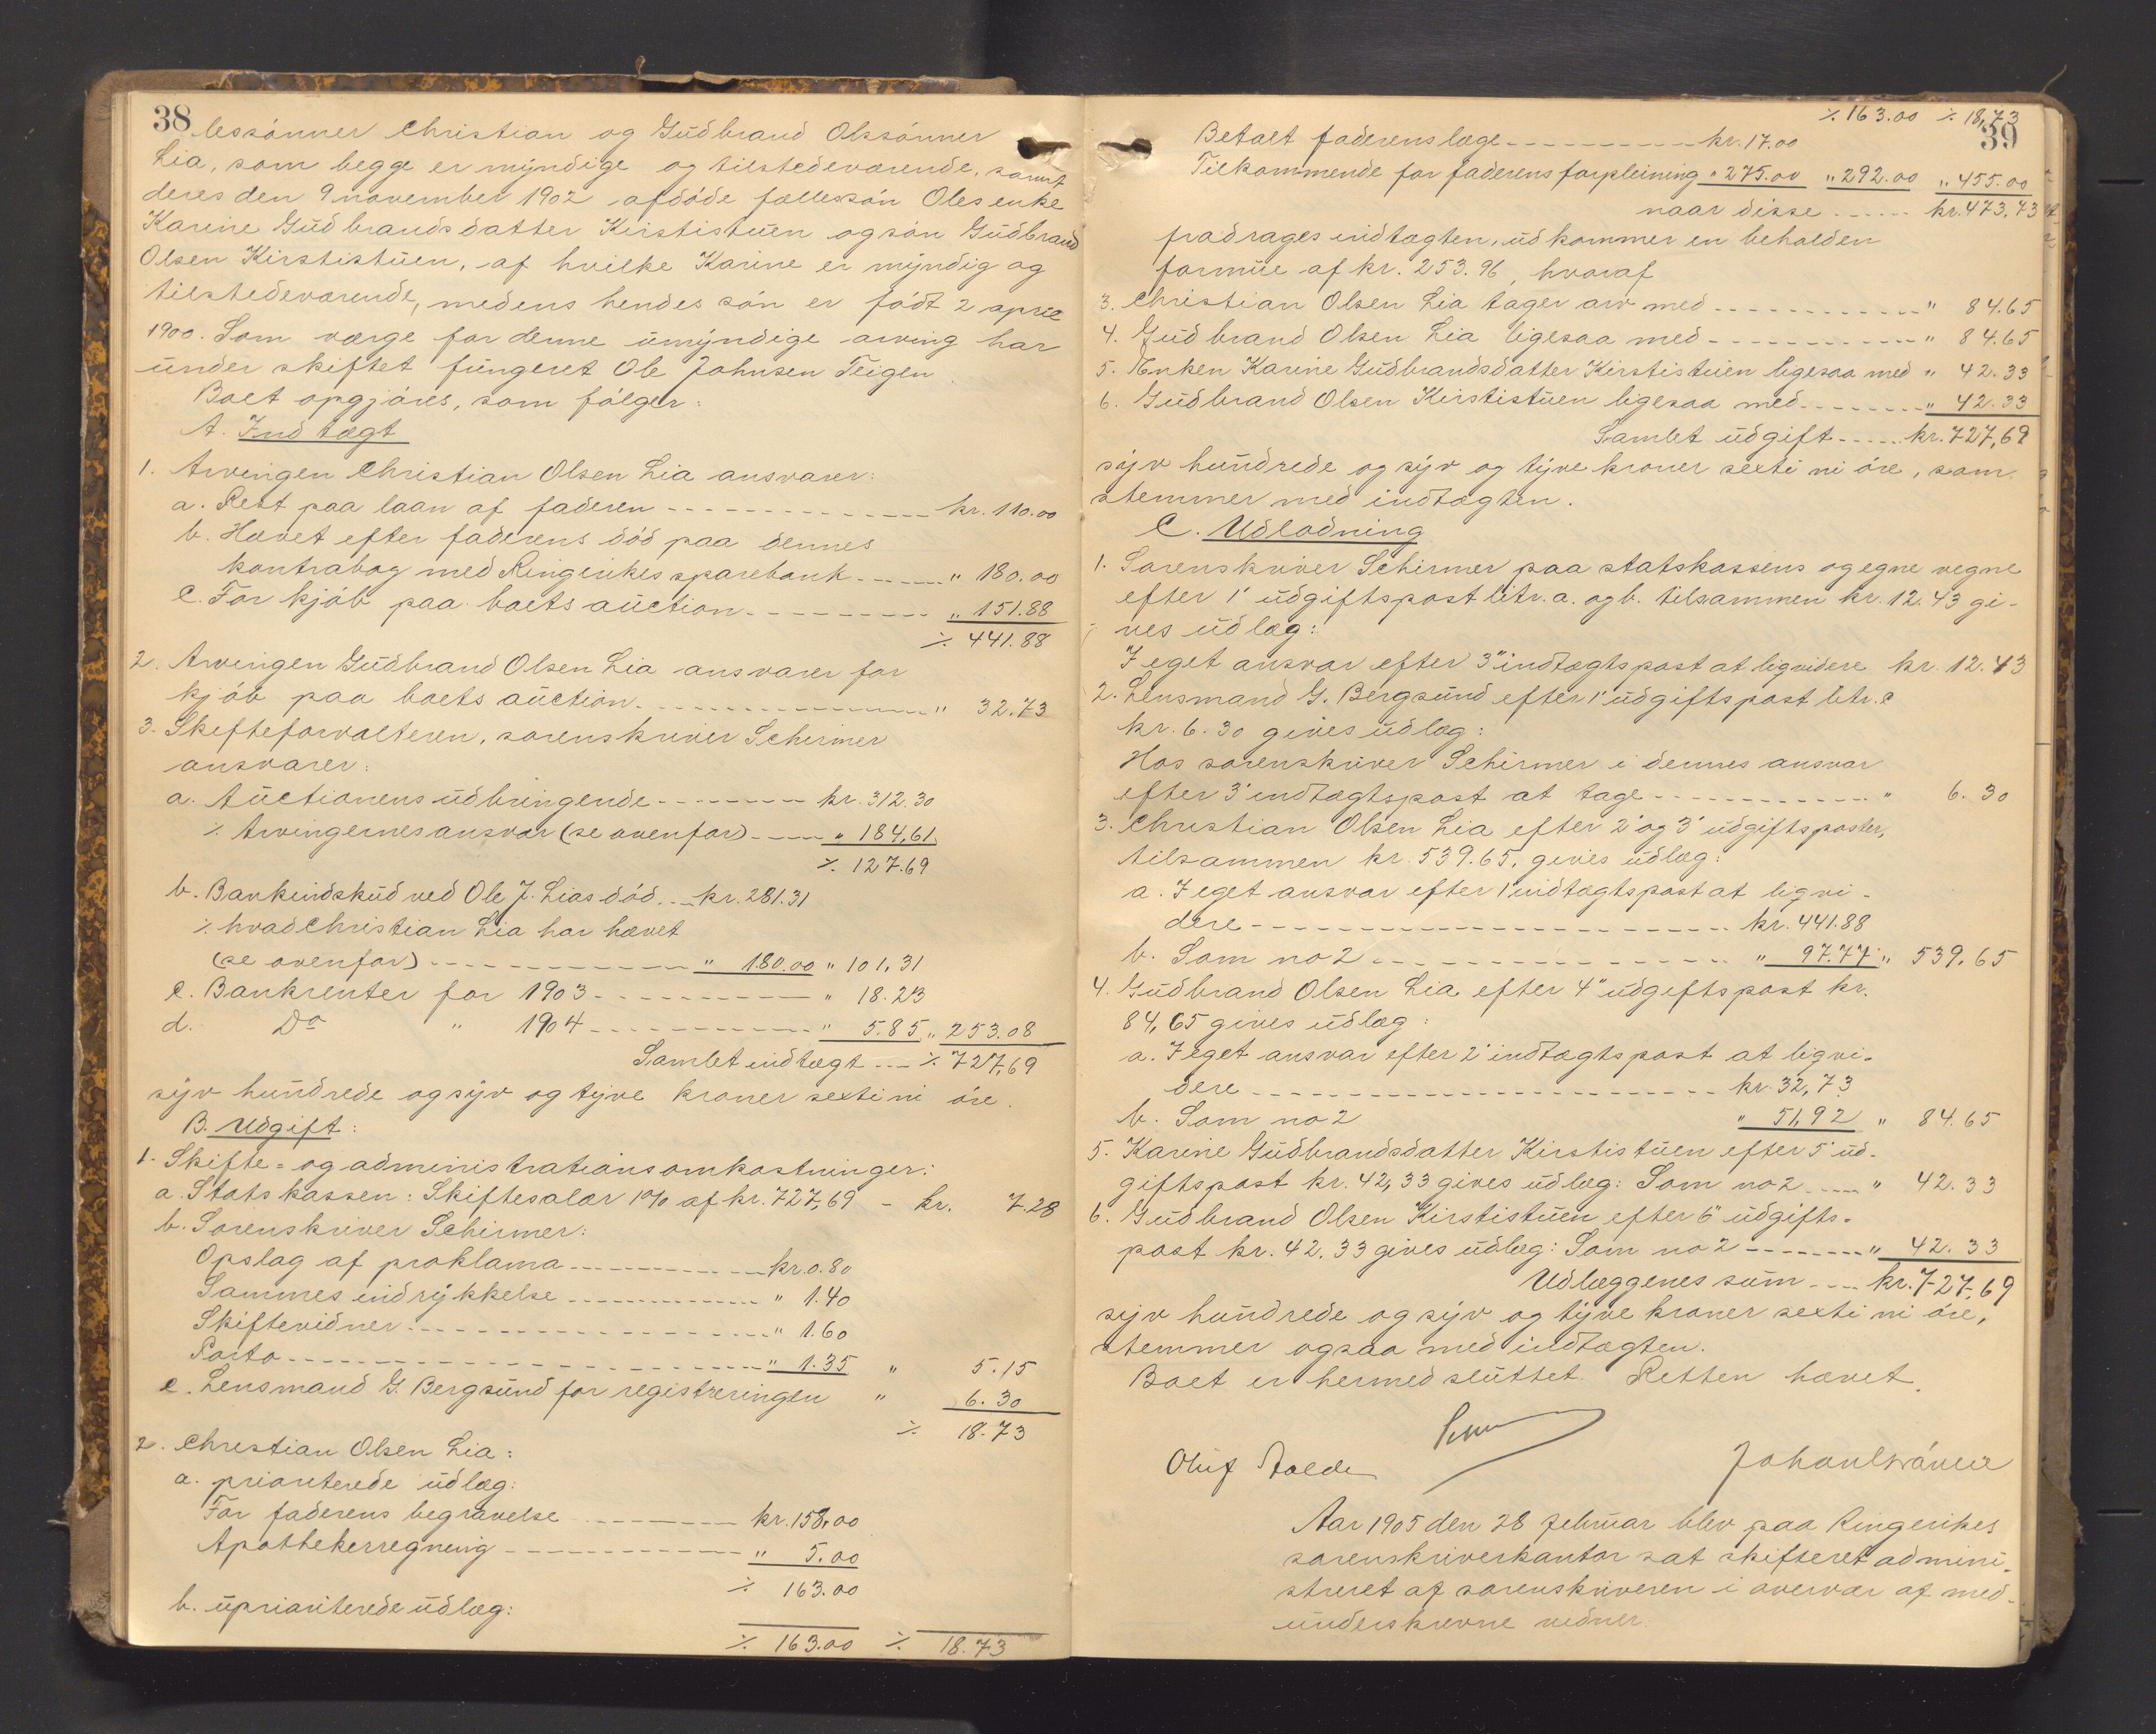 38
lessønner Christian og Gudbrand Olssønner
Lia, som begge er myndige og tilstedeværende, samt
deres den 9 november 1902 afdøde fællessøn Oles enke
Karine Gudbrandsdatter Kirstistuen og søn Gudbrand
Olsen Kirstistuen, af hvilke Karine er myndig og
tilstedeværende, medens hendes søn er født 2 april
1900. Som værge for denne umyndige arving har
under skiftet fungeret Ole Johnsen Teigen.
Boet opgjøres, som følger:
A. Indtægt
1. Arvingen Christian Olsen Lia ansvarer:
a. Rest paa laan af faderen kr. 110.00
b. Hævet efter faderens død paa dennes
kontrabog med Ringerikes sparebank " 180.00
c. For kjøb paa boets auction " 151.88
٪ 441.88
2. Arvingen Gudbrand Olsen Lia ansvarer for
kjøb paa boets auction " 32.73
3. Skifteforvalteren, sorenskriver Schirmer
ansvarer:
a. Auctionens udbringende kr. 312.30
٪ Arvingernes ansvar (se ovenfor) " 184,61.
٪ 127.69
b. Bankindskud ved Ole J. Lias død kr. 281.31
٪ hvad Christian Lia har hævet
(se ovenfor) " 180.00 " 101,31
c. Bankrenter for 1903 " 18.23
d. Do " 1904 " 5.85 " 253.08
Samlet indtægt ٪ 727,69
syv hundrede og syv og tyve kroner sexti ni øre.
B. Udgift:
1. Skifte- og administrationsomkostninger:
a. Statskassen: Skiftesalær 1% af kr. 727,69 - kr. 7.28
b. Sorenskriver Schirmer:
Opslag af proklama kr. 0.80
Sammes indrykkelse " 1.40
Skiftevidner " 1.60
Porto " 1.35 " 5.15
c. Lensmand G. Bergsund for registreringen " 6.30
٪ 18.73
2. Christian Olsen Lia:
a. prioriterede udlæg:
For faderens begravelse kr. 158,00
Apothekerregning " 5.00
٪ 163.00
b. uprioriterede udlæg:
٪ 163.00 ٪ 18.73
٪ 163.00 ٪ 18,73
39
Betalt faderens læge kr. 17.00
Tilkommende for faderens forpleining " 275.00 " 292.00 " 455.00
naar disse kr. 473,73
fradrages indtægten, udkommer en beholden
formue af kr. 253.96, hvoraf
3. Christian Olsen Lia tager arv med " 84.65
4. Gudbrand Olsen Lia ligesaa med " 84.65
5. Enken Karine Gudbrandsdatter Kirstistuen ligesaa med " 42.33
6. Gudbrand Olsen Kirstistuen ligesaa med " 42.33
Samlet udgift kr. 727,69
syv hundrede og syv og tyve kroner sexti ni øre, som
stemmer med indtægten.
C. Udlodning
1. Sorenskriver Schirmer paa statskassens og egne vegne
efter 1' udgiftspost litr. a. og b. tilsammen kr. 12.43 gi-
ves udlæg:
I eget ansvar efter 3" indtægtspost at liqvidere kr. 12.43
2. Lensmand G. Bergsund efter 1' udgiftspost litr. c
kr. 6.30 gives udlæg:
Hos sorenskriver Schirmer i dennes ansvar
efter 3' indtægtspost at tage " 6.30
3. Christian Olsen Lia efter 2' og 3' udgiftsposter,
tilsammen kr. 539.65, gives udlæg:
a. I eget ansvar efter 1' indtægtspost at liqvi-
dere kr. 441.88
b. Som no 2 " 97.77 " 539.65
4. Gudbrand Olsen Lia efter 4" udgiftspost kr.
84,65 gives udlæg:
a. I eget ansvar efter 2' indtægtspost at liqvi-
dere kr. 32,73
b. Som no 2 " 51,92 " 84.65
5. Karine Gudbrandsdatter Kirstistuen efter 5' ud-
giftspost kr. 42,33 gives udlæg: Som no 2 " 42.33
6. Gudbrand Olsen Kirstistuen efter 6" udgifts-
post kr. 42.33 gives udlæg: Som no 2 " 42.33
Udlæggenes sum kr. 727,69
syv hundrede og syv og tyve kroner sexti ni øre,
stemmer ogsaa med indtægten.
Boet er hermed sluttet. Retten hævet.
Oluf
Aar 1905 den 28 februar blev paa Ringerikes
sorenskriverkontor sat skifteret admini-
streret af sorenskriveren i overvær af med-
underskrevne vidner.